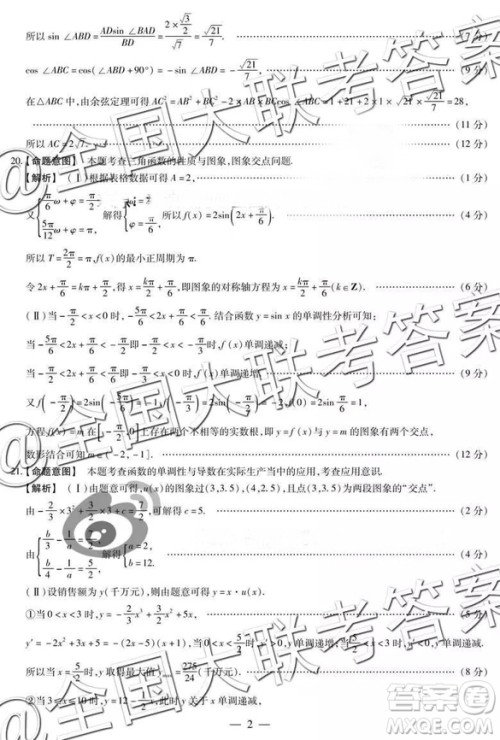 所以 sin ∠ABD = ADsin ∠BAD / BD = (2 × √3/2) / √7 = √21/7. (7 分)
cos ∠ABC = cos(∠ABD + 90°) = − sin ∠ABD = − √21/7. (9 分)
在△ABC 中,由余弦定理可得 AC² = AB² + BC² − 2 × AB × BCcos ∠ABC = 1 + 21 + 2 × 1 × √21 × √21/7 = 28,
(11 分)
所以 AC = 2√7. (12 分)
20.【命题意图】 本题考查三角函数的性质与图象,图象交点问题.
【解析】 (Ⅰ)根据表格数据可得 A = 2, (1 分)
又 { π/6 ω + φ = , 5π/12 ω + φ = π, 解得 所以 f(x) = 2sin(2x + π/6). (4 分)
所以 T = 2π/2 = π, f(x) 的最小正周期为 π.
令 2x + π/6 = kπ + π/2, 得 x = kπ/2 + π/6, 即图象的对称轴方程为 x = kπ/2 + π/6 (k∈Z). (6 分)
(Ⅱ)当 − π/2 < x < 0 时, − 5π/6 < 2x + π/6 < π/6. 结合函数 y = sin x 的单调性分析可知:
当 − 5π/6 < 2x + π/6 < − π/2 即 − π/2 < x < − π/3 时, f(x) 单调递减;
当 − π/2 < 2x + π/6 < π/6 即 − π/3 < x < 0 时, f(x) 单调递增. (9 分)
又 f(− π/2) = 2sin(− 5π/6) = , f(− π/3) = 2sin(− π/2) = − 2, f(0) = 2sin π/6 = 1,
方程 f(x) = m 在 [− π/2, 0] 上存在两个不相等的实数根, 即 y = f(x) 与 y = m 的图象有两个交点.
数形结合可知 m∈( − 2, − 1]. (12 分)
21.【命题意图】 本题考查函数的单调性与导数在实际生产当中的应用,考查应用意识.
【解析】 (Ⅰ)由题意可得, u(x) 的图象过(3,3.5),(4,2.5),且点(3,3.5)为两段图象的“交点”.
由 − 2/3 × 3² + 3/2 × 3 + c = 7/2, 可求得 c = 5. (2 分)
由 { b/3 − 1/a = 7/2, b/4 − 1/a = 5/2, 解得 { a = 2, b = 12. (4 分)
(Ⅱ)设销售额为 y(千万元),则由题意可得 y = x · u(x).
①当 0 < x < 3 时, y = − 2/3 x³ + 3/2 x² + 5x, (5 分)
y′ = − 2x² + 3x + 5 = − (2x − 5)(x + 1), 当 0 < x < 5/2 时, y 单调递增;当 5/2 < x < 3 时, y 单调递减,
所以当 x = 5/2 时, y 取得最大值 = 275/24 (千万元). (8 分)
②当 3 ≤ x ≤ 10 时, 此时 y 关于 x 单调递减,
— 2 —
@全国大联考答案
@全国大联考答案
答案圈
MXQE.COM